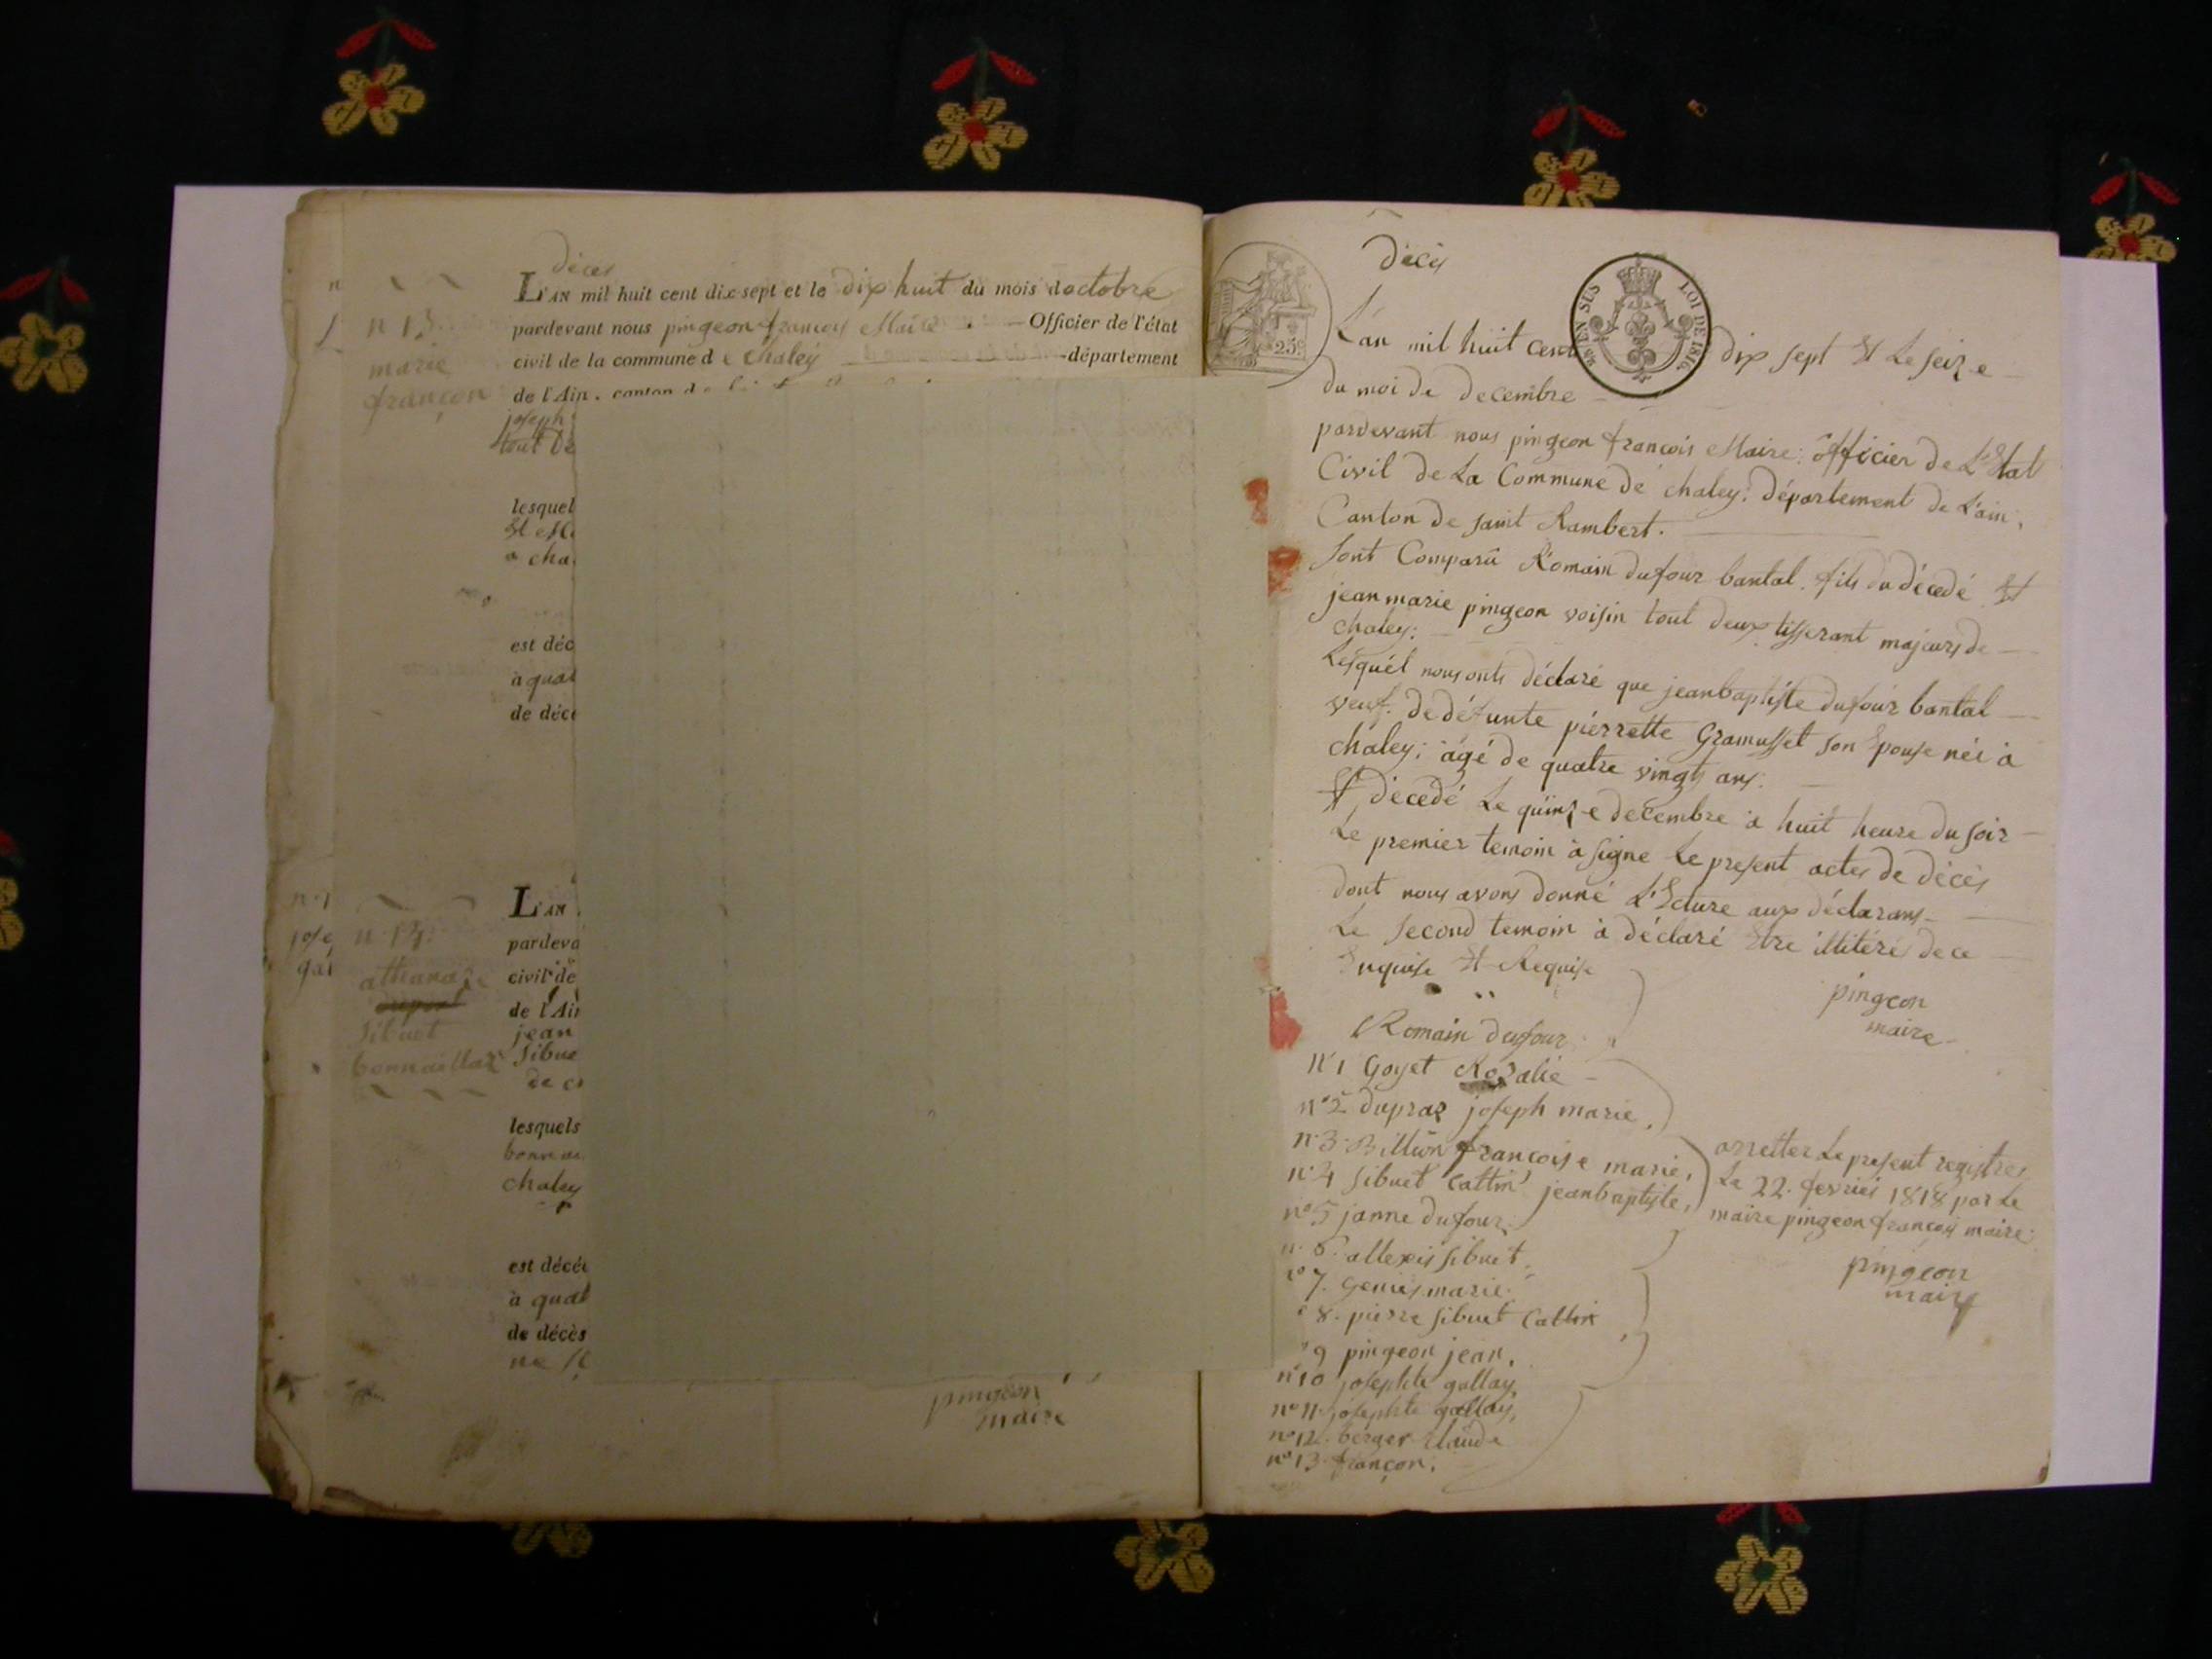 décès
L'AN mil huit cent dix sept et le dix huit du mois doctobre
n 13.
pardevant nous pingeon françois Maire. Officier de l'état
marie
civil de la commune de chaley département
françon
de l'Ain, canton de
joseph
tout de
lesquel
Et
a cha
est déc
à quat
de déce
L'AN
n 14.
pardeva
athanaze
civil de
de l'Ain
Sibuet
jean
bonnaillaz
Sibue
de
lesquels
chaley
est décé
à quat
de décès
ne
pingeon
maire
Décès
25 c
EN SUS LOI DE 1816.
L'an mil huit cent dix sept Et Le seize
du moi de decembre
pardevant nous pingeon françois Maire: officier de L'Etat
Civil de La Commune de chaley: département de L'ain,
Canton de saint Rambert.
sont Comparû Romain dufour bantal. fils du décedé Et
jean marie pingeon voisin tout deux tisserant majeurs de
chaley:
Lesquél nous onts déclaré que jeanbaptiste dufour bantal
veuf. de défunte pierrette Gramusset son Epouse néé à
chaley: agé de quatre vingts ans:
Et décedé Le quinze decembre à huit heure du soir
Le premier temoin à signe Le present actes de décès
dont nous avons donné L'Ecture aux déclarans
Le second temoin à déclaré Etre illitéré de ce
Enquise Et Requise
pingeon
maire
Romain dufour
n°1 Goyet Rozalie
n°2 dupraz joseph marie,
n°3 Billion françoise marie,
n°4 Sibuet Cattin jeanbaptiste,
n°5 janne dufour
n°6. allexis sibuet,
n°7. Genies marie
n°8. pierre sibuet Cattin
n°9 pingeon jean,
n°10 josephte gallay,
n°11 josephte gallay,
n°12. berger claude
n°13 françon,
arretter Le present registres
Le 22. fevries 1818 par Le
maire pingeon françois maire:
pingeon
maire